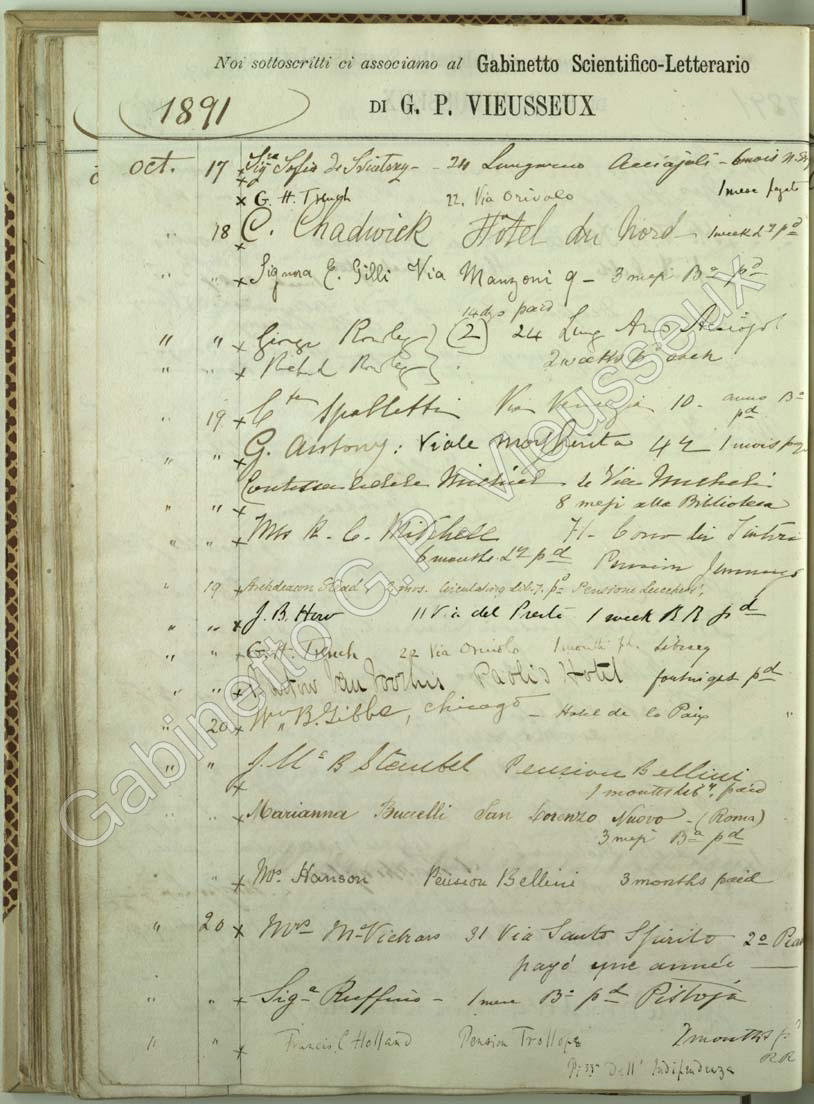 Noi sottoscritti ci associamo al Gabinetto Scientifico-Letterario
1891 DI G. P. VIEUSSEUX
Oct. 17 x Sigra Sofia de - 24 Lungarno Acciajoli - 6 mois
x G. H. Trench 22, Via Orivolo 1 mese pagato
" 18 x C. Chadwick Hôtel du Nord 1 week Ly pd
" " x Signora E. Gilli Via Manzoni 9 - 3 mesi Ba pd
14 dys paid
" " x George Rowley } (2) 24 Lung Arno Acciajoli
" " x Richd Rowley } 2 weeks pd each
" 19 x Cte Spalletti Via Venezia 10 - anno Ba
pd
" " x G. Antony: Viale Margherita 42 1 mois
Contessa Michiel 4 Via Micheli
" " x 8 mesi alla Biblioteca
" " x Mrs K. C. Mitchell 71 - Corso dei Tintori
6 months Ly pd Pension Jennings
" 19 x Archdeacon Head 3 mos. Circulating Lib.y pd Pensione Lucchesi,
" " x J. B. How 11 Via del Presto 1 week RR pd
" " x G. H. Trench 22 Via Orivolo 1 month pd. Library
" " x Van Voorhis Paoli's Hotel fortnight pd
" 20 x Wm B. Gibbs, Chicago - Hotel de la Paix "
" " x J. Mc B Pension Bellini
1 months Liby, paid
" " x Marianna Buccelli San Lorenzo Nuovo - (Roma)
3 mesi Ba pd
" " x Mrs Hanson Pension Bellini 3 months paid
" 20 x Mrs McVickars 31 Via Santo Spirito 2o
payé une année —
" " x Siga Ruffino - 1 mese Ba pd Pistoja
" " x Francis C Holland Pension Trollope 2 months pd
RR
Pizza Dell' Indipendenza
Gabinetto G. P. Vieusseux